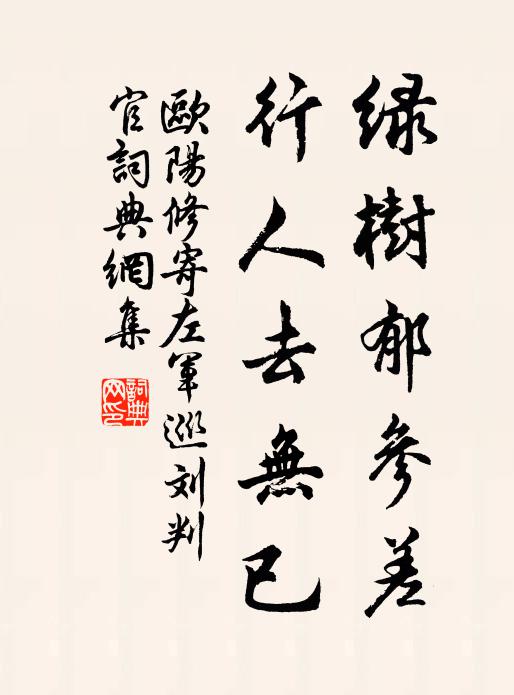 绿樹郁參差
行人去無已
歐陽修寄左軍巡刘判
官詞典網集
詞典
网印